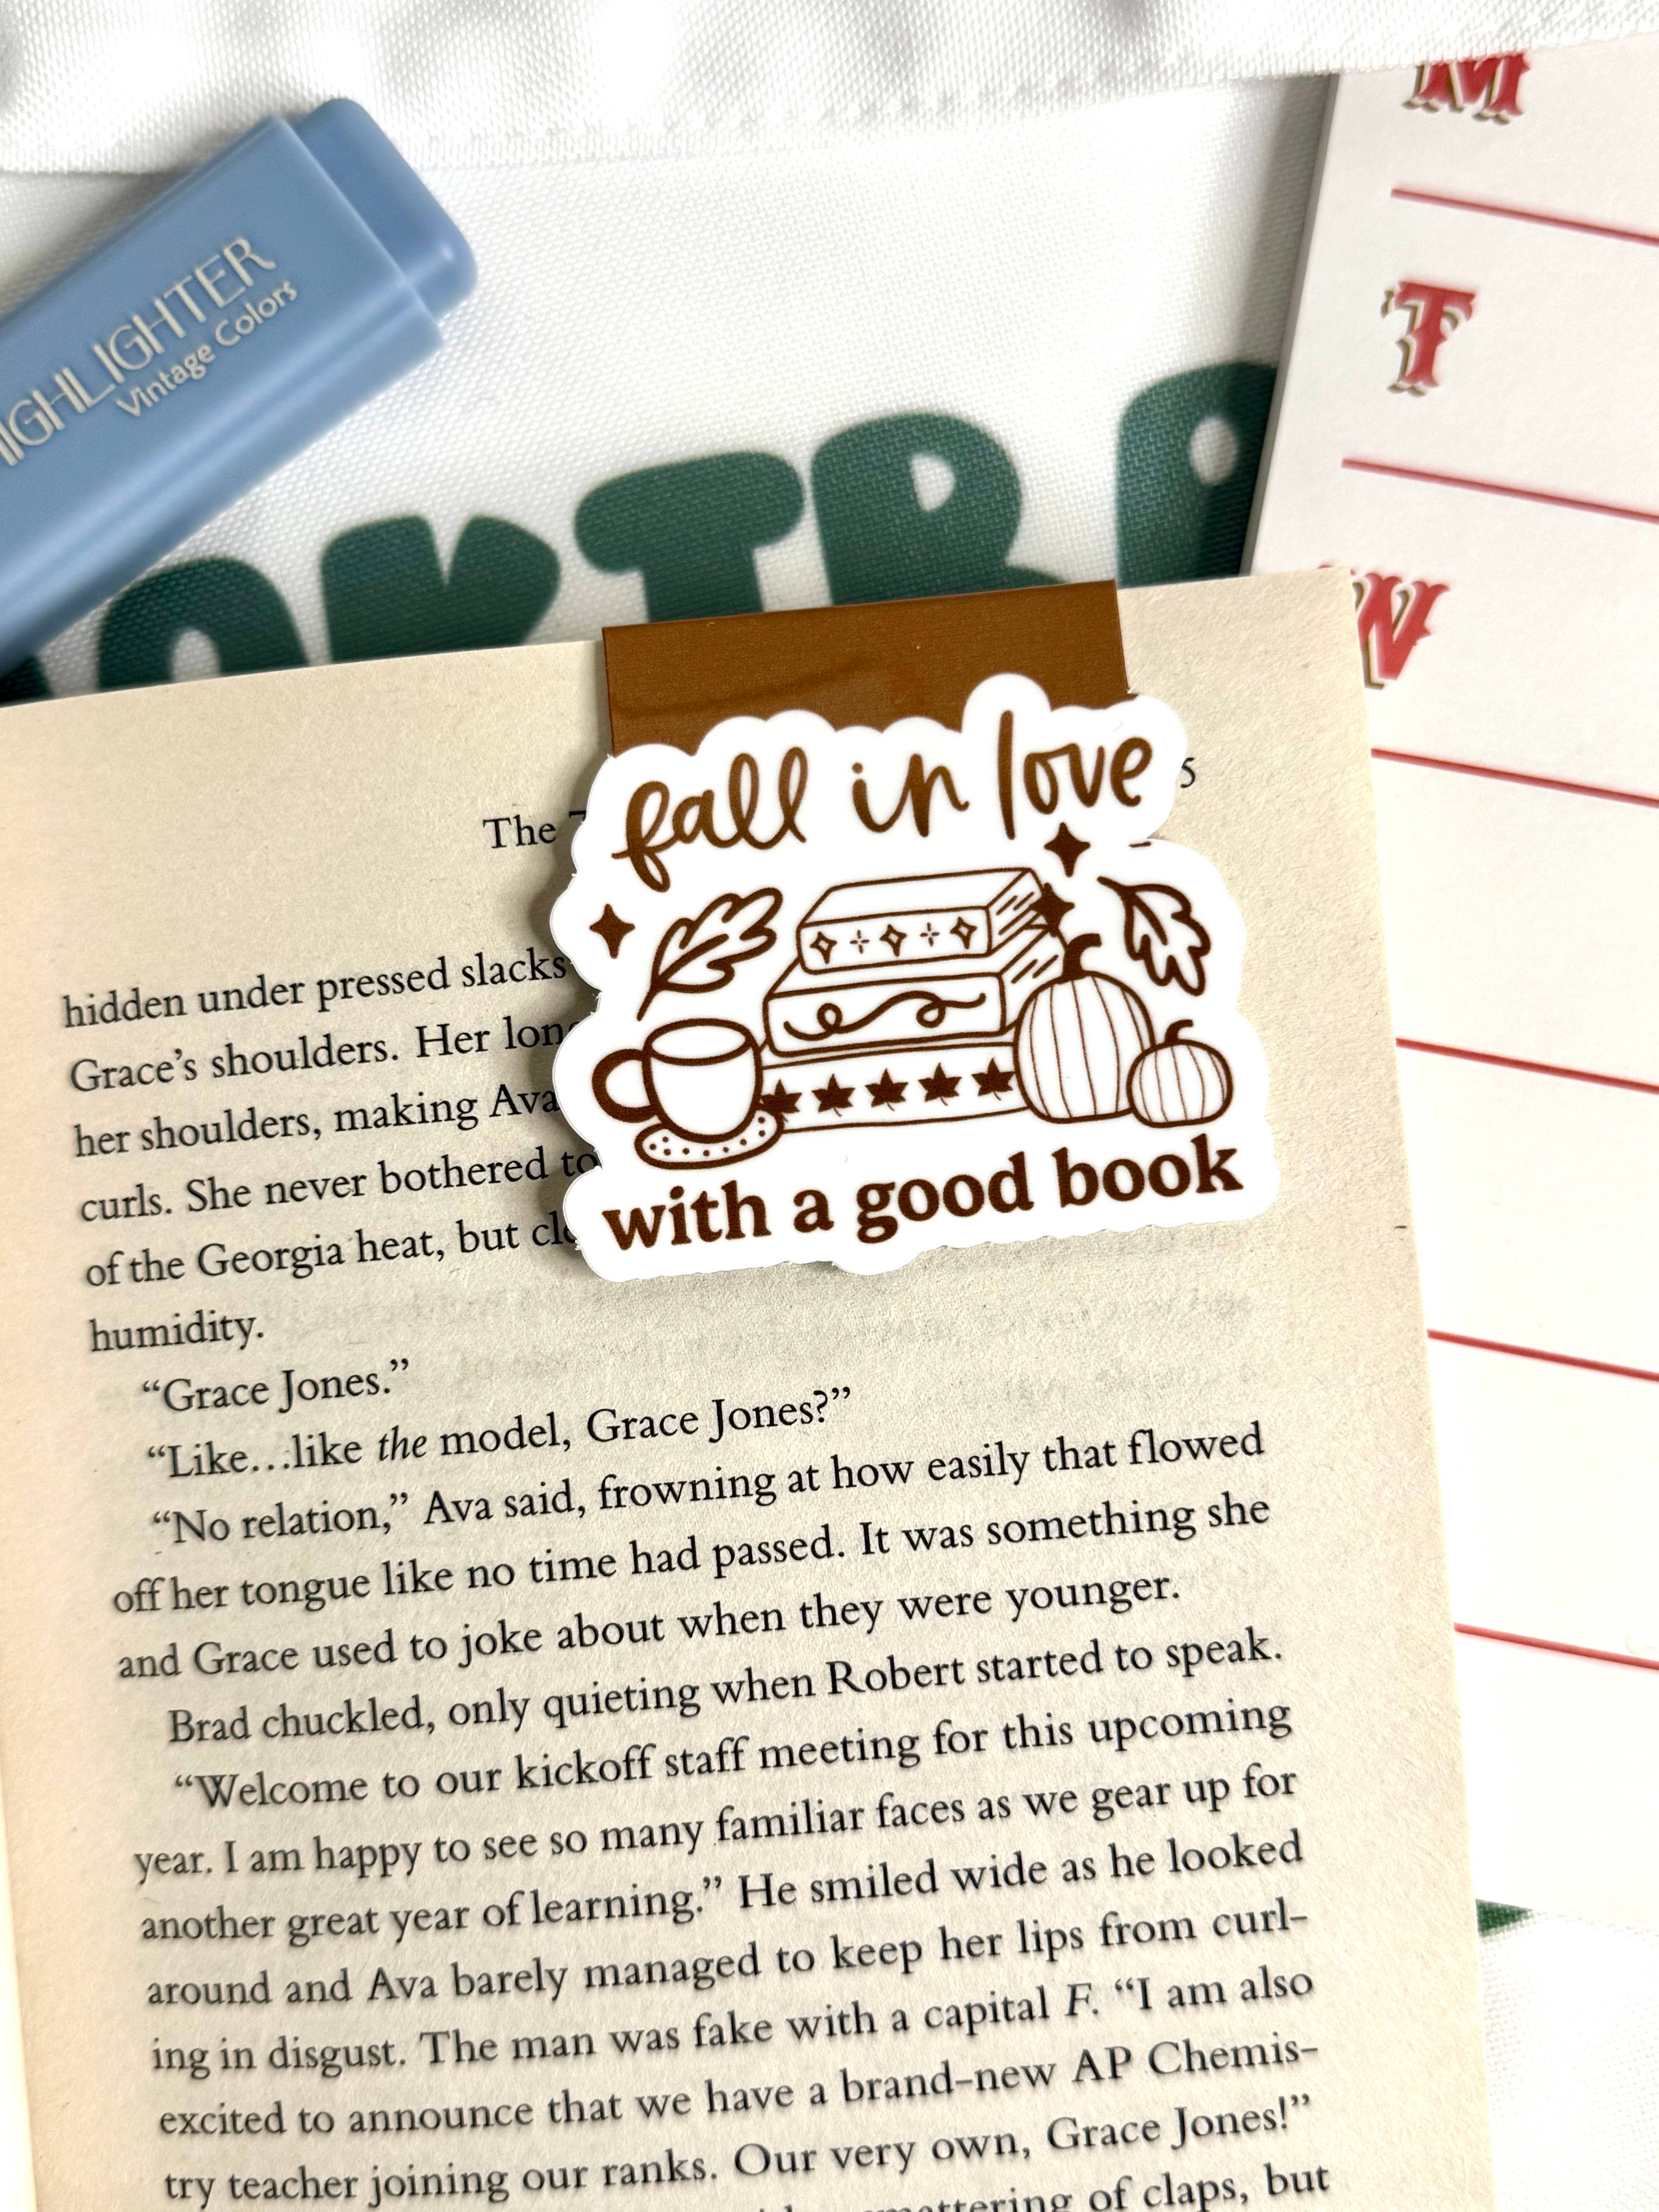 HIGHLIGHTER
Vintage Colors
M
T
W
OKTR
The
5
fall in love
with a good book
hidden under pressed slacks
Grace’s shoulders. Her
her shoulders, making Ava
curls. She never bothered to
of the Georgia heat, but
humidity.
“Grace Jones.”
“Like…like the model, Grace Jones?”
“No relation,” Ava said, frowning at how easily that flowed
off her tongue like no time had passed. It was something she
and Grace used to joke about when they were younger.
Brad chuckled, only quieting when Robert started to speak.
“Welcome to our kickoff staff meeting for this upcoming
year. I am happy to see so many familiar faces as we gear up for
another great year of learning.” He smiled wide as he looked
around and Ava barely managed to keep her lips from curl-
ing in disgust. The man was fake with a capital F. “I am also
excited to announce that we have a brand-new AP Chemis-
try teacher joining our ranks. Our very own, Grace Jones!”
of claps, but